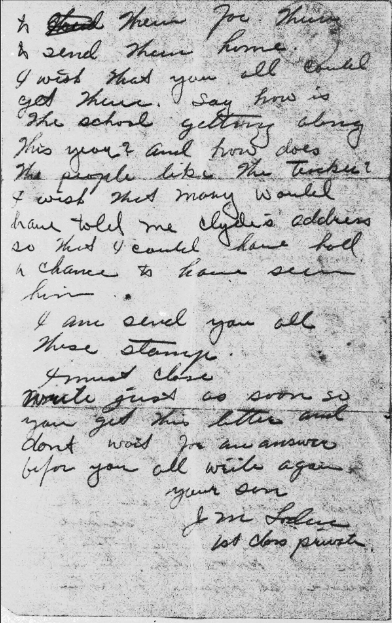 to them for them
to send them home.
I wish that you all could
get them. Say how is
the school getting along
this year? and how does
the people like the teacher?
I wish that Mary would
have told me Clyde's address
so that I could have had
a chance to have seen
him.
I am send you all
these stamp.
I must close
write just as soon so
you get this letter and
dont wait for an answer
befor you all write again.
your son
J M
1st class private.